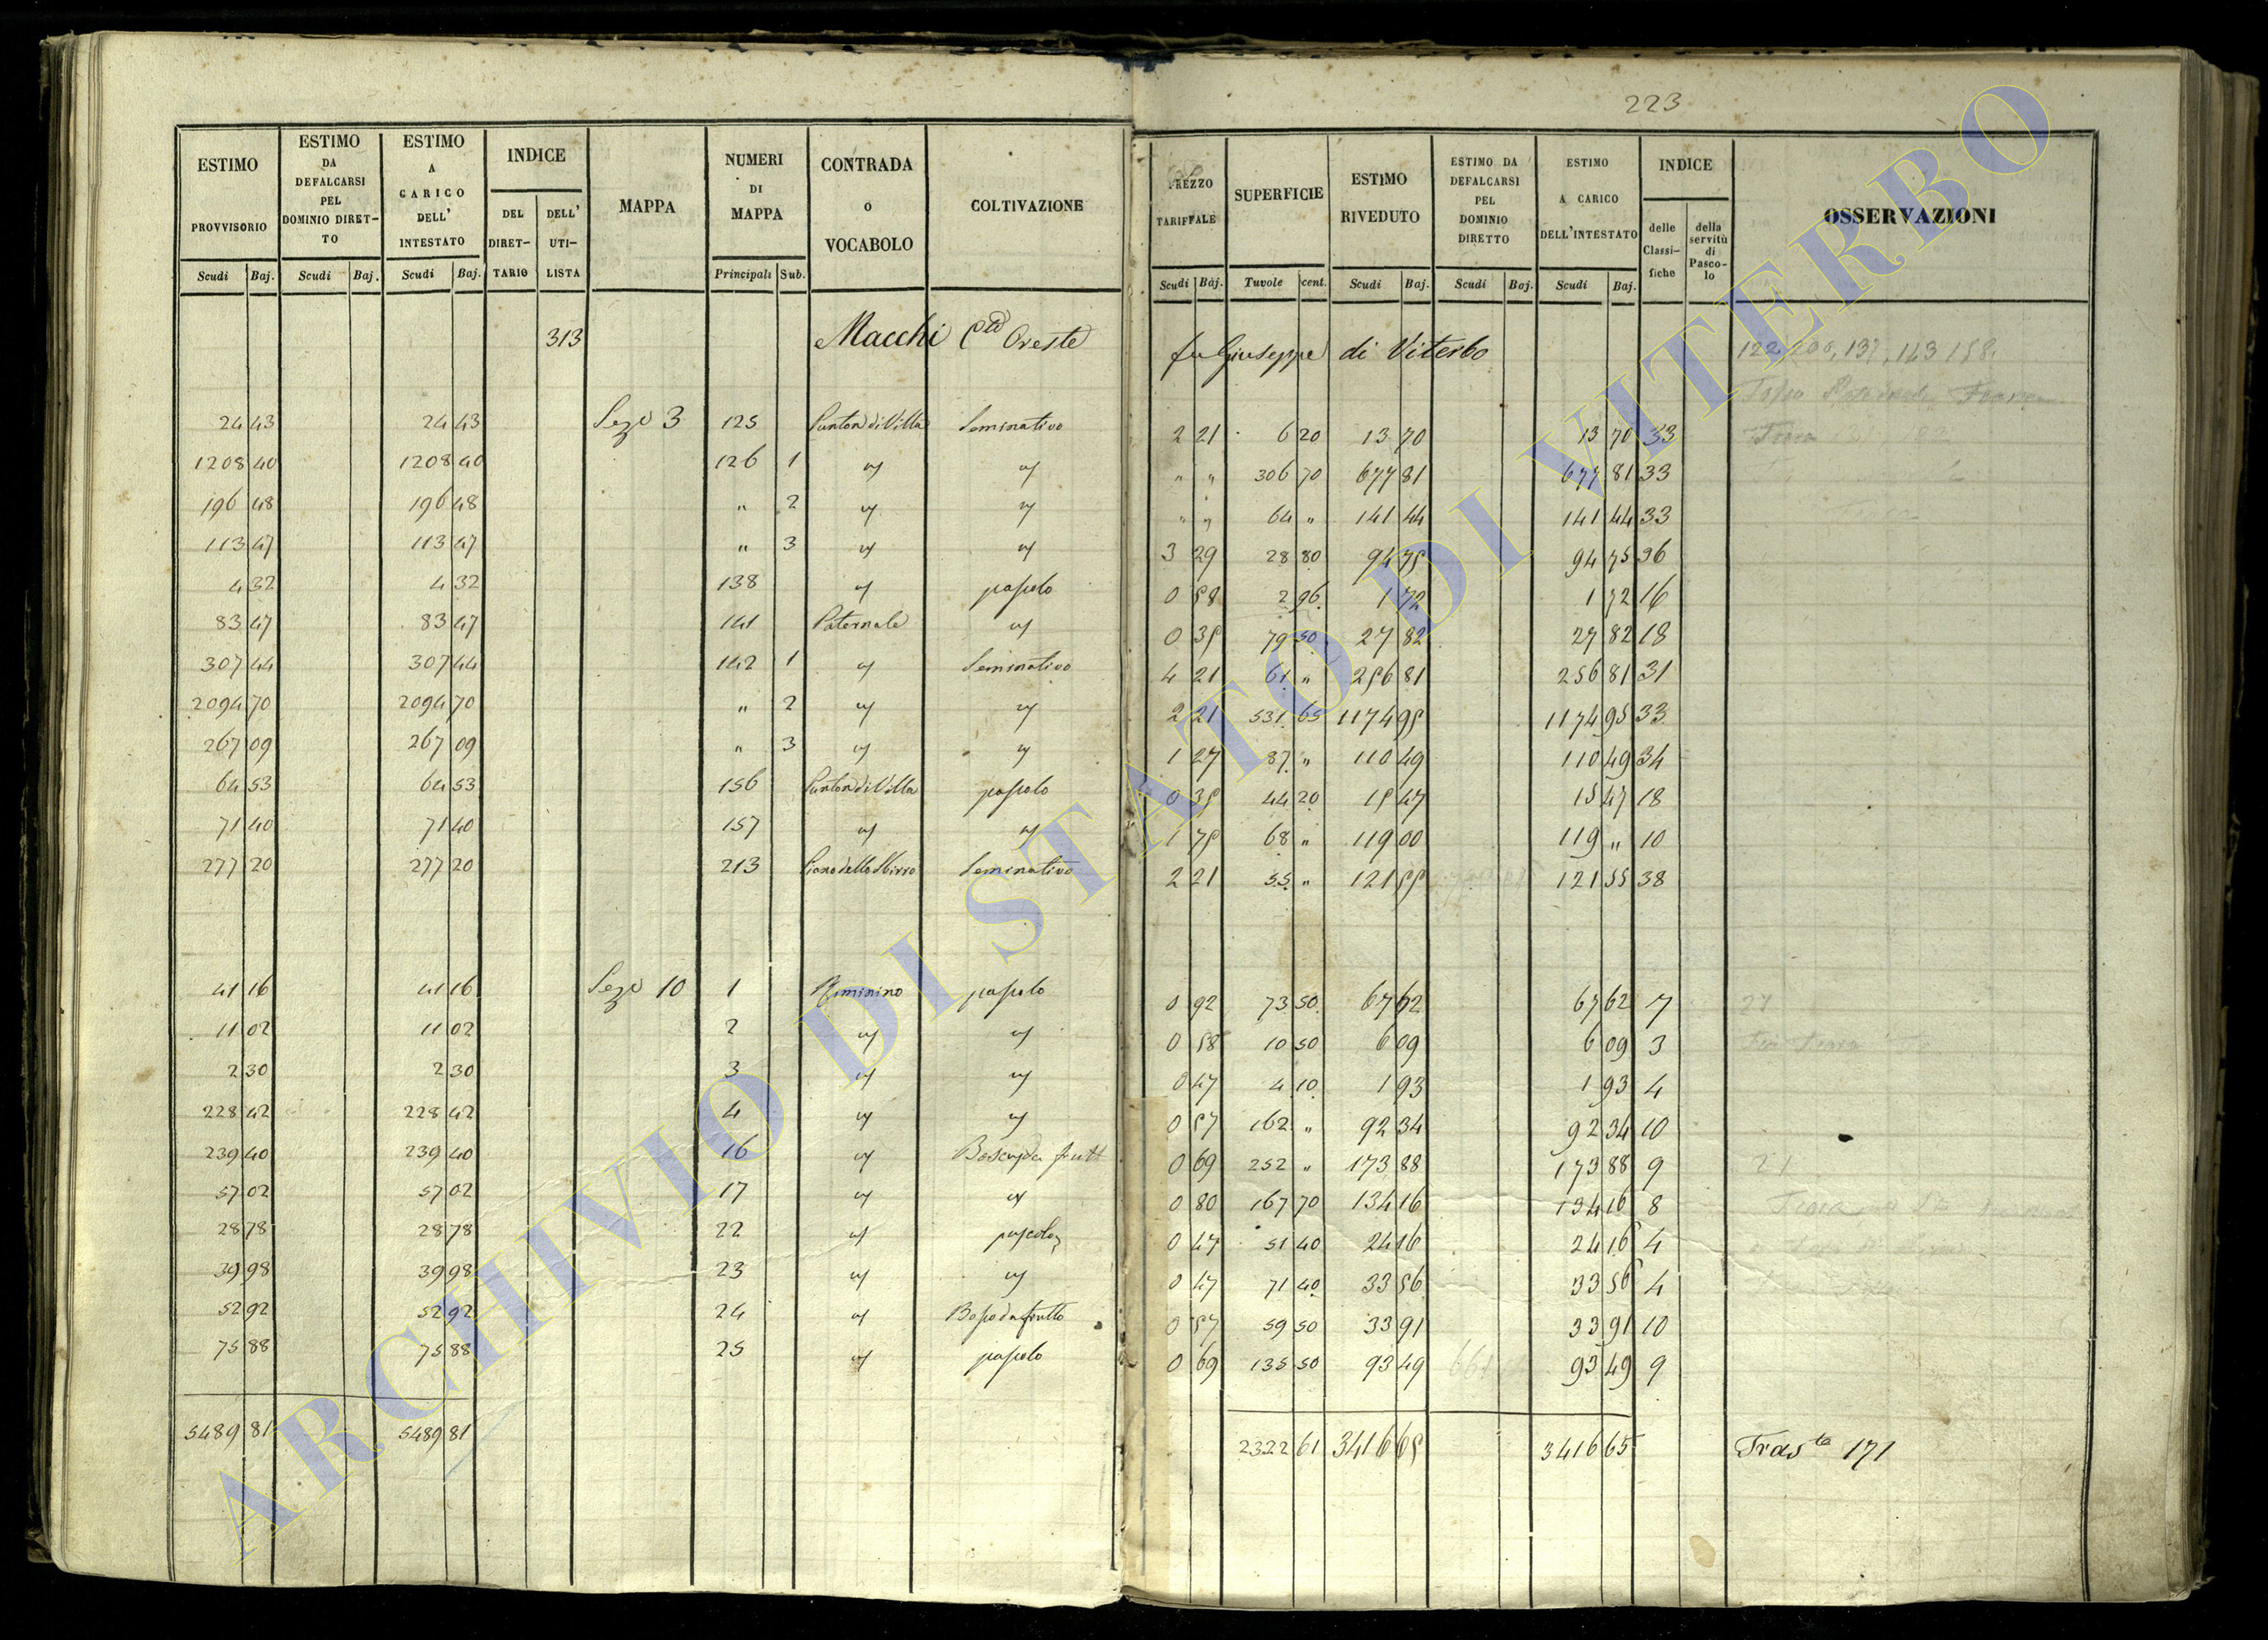 223
ESTIMO PROVVISORIO | ESTIMO DA DEFALCARSI PEL DOMINIO DIRETTO | ESTIMO A CARICO DELL' INTESTATO | INDICE | MAPPA | NUMERI DI MAPPA | CONTRADA O VOCABOLO | COLTIVAZIONE | PREZZO TARIFFALE | SUPERFICIE | ESTIMO RIVEDUTO | ESTIMO DA DEFALCARSI PEL DOMINIO DIRETTO | ESTIMO A CARICO DELL'INTESTATO | INDICE | OSSERVAZIONI
DEL DIRETTARIO | DELL' UTILISTA | delle Classifiche | della servitù di Pascolo
Scudi | Baj. | Scudi | Baj. | Scudi | Baj. | Principali | Sub. | Scudi | Baj. | Tavole | cent. | Scudi | Baj. | Scudi | Baj. | Scudi | Baj.
313 Macchi Cte Oreste fu Giuseppe di Viterbo 122, 200, 137, 143 158.
24 43 | 24 43 | Sezo 3 | 125 | Punton di Villa | Seminativo | 2 21 | 6 20 | 13 70 | 13 70 | 33
1208 40 | 1208 40 | 126 1 | " | " | " " | 306 70 | 677 81 | 677 81 | 33
196 48 | 196 48 | " 2 | " | " | " " | 64 " | 141 44 | 141 44 | 33
113 47 | 113 47 | " 3 | " | " | 3 29 | 28 80 | 94 75 | 94 75 | 36
4 32 | 4 32 | 138 | " | pascolo | 0 58 | 2 96 | 1 72 | 1 72 | 16
83 47 | 83 47 | 141 | Paternale | " | 0 35 | 79 50 | 27 82 | 27 82 | 18
307 44 | 307 44 | 142 1 | " | Seminativo | 4 21 | 61 " | 256 81 | 256 81 | 31
2094 70 | 2094 70 | " 2 | " | " | 2 21 | 531 65 | 1174 95 | 1174 95 | 33
267 09 | 267 09 | " 3 | " | " | 1 27 | 87 " | 110 49 | 110 49 | 34
64 53 | 64 53 | 156 | Punton di Villa | pascolo | 0 35 | 44 20 | 15 47 | 15 47 | 18
71 40 | 71 40 | 157 | " | " | 1 75 | 68 " | 119 00 | 119 " | 10
277 20 | 277 20 | 213 | Piano dello Sbirro | Seminativo | 2 21 | 55 " | 121 55 | 121 55 | 38
41 16 | 41 16 | Sezo 10 | 1 | Riminino | pascolo | 0 92 | 73 50 | 67 62 | 67 62 | 7
11 02 | 11 02 | 2 | " | " | 0 58 | 10 50 | 6 09 | 6 09 | 3
2 30 | 2 30 | 3 | " | " | 0 47 | 4 10 | 1 93 | 1 93 | 4
228 42 | 228 42 | 4 | " | " | 0 57 | 162 " | 92 34 | 92 34 | 10
239 40 | 239 40 | 16 | " | Bosc da frutt | 0 69 | 252 " | 173 88 | 173 88 | 9
57 02 | 57 02 | 17 | " | " | 0 80 | 167 70 | 134 16 | 134 16 | 8
28 78 | 28 78 | 22 | " | pascolo | 0 47 | 51 40 | 24 16 | 24 16 | 4
39 98 | 39 98 | 23 | " | " | 0 47 | 71 40 | 33 56 | 33 56 | 4
52 92 | 52 92 | 24 | " | Bosco da frutto | 0 57 | 59 50 | 33 91 | 33 91 | 10
75 88 | 75 88 | 25 | " | pascolo | 0 69 | 135 50 | 93 49 | 93 49 | 9
5489 81 | 5489 81 | 2322 61 | 3416 65 | 3416 65 | Trasto 171
ARCHIVIO DI STATO DI VITERBO